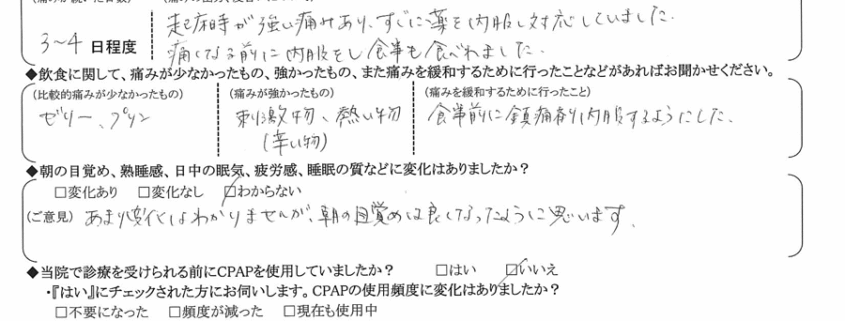 起床時が強い痛みあり、すぐに薬を内服し対応していました。
3~4 日程度
痛くなる前に内服をし食事も食べれました。
◆飲食に関して、痛みが少なかったもの、強かったもの、また痛みを緩和するために行ったことなどがあればお聞かせください。
(比較的痛みが少なかったもの) (痛みが強かったもの) (痛みを緩和するために行ったこと)
ゼリー、プリン 刺激物、熱い物 食事前に鎮痛剤内服するようにした。
(辛い物)
◆朝の目覚め、熟睡感、日中の眠気、疲労感、睡眠の質などに変化はありましたか？
□変化あり □変化なし ☑わからない
(ご意見) あまり変化はわかりませんが、朝の目覚めは良くなったように思います。
◆当院で診療を受けられる前にCPAPを使用していましたか？ □はい ☑いいえ
・『はい』にチェックされた方にお伺いします。CPAPの使用頻度に変化はありましたか？
□不要になった □頻度が減った □現在も使用中